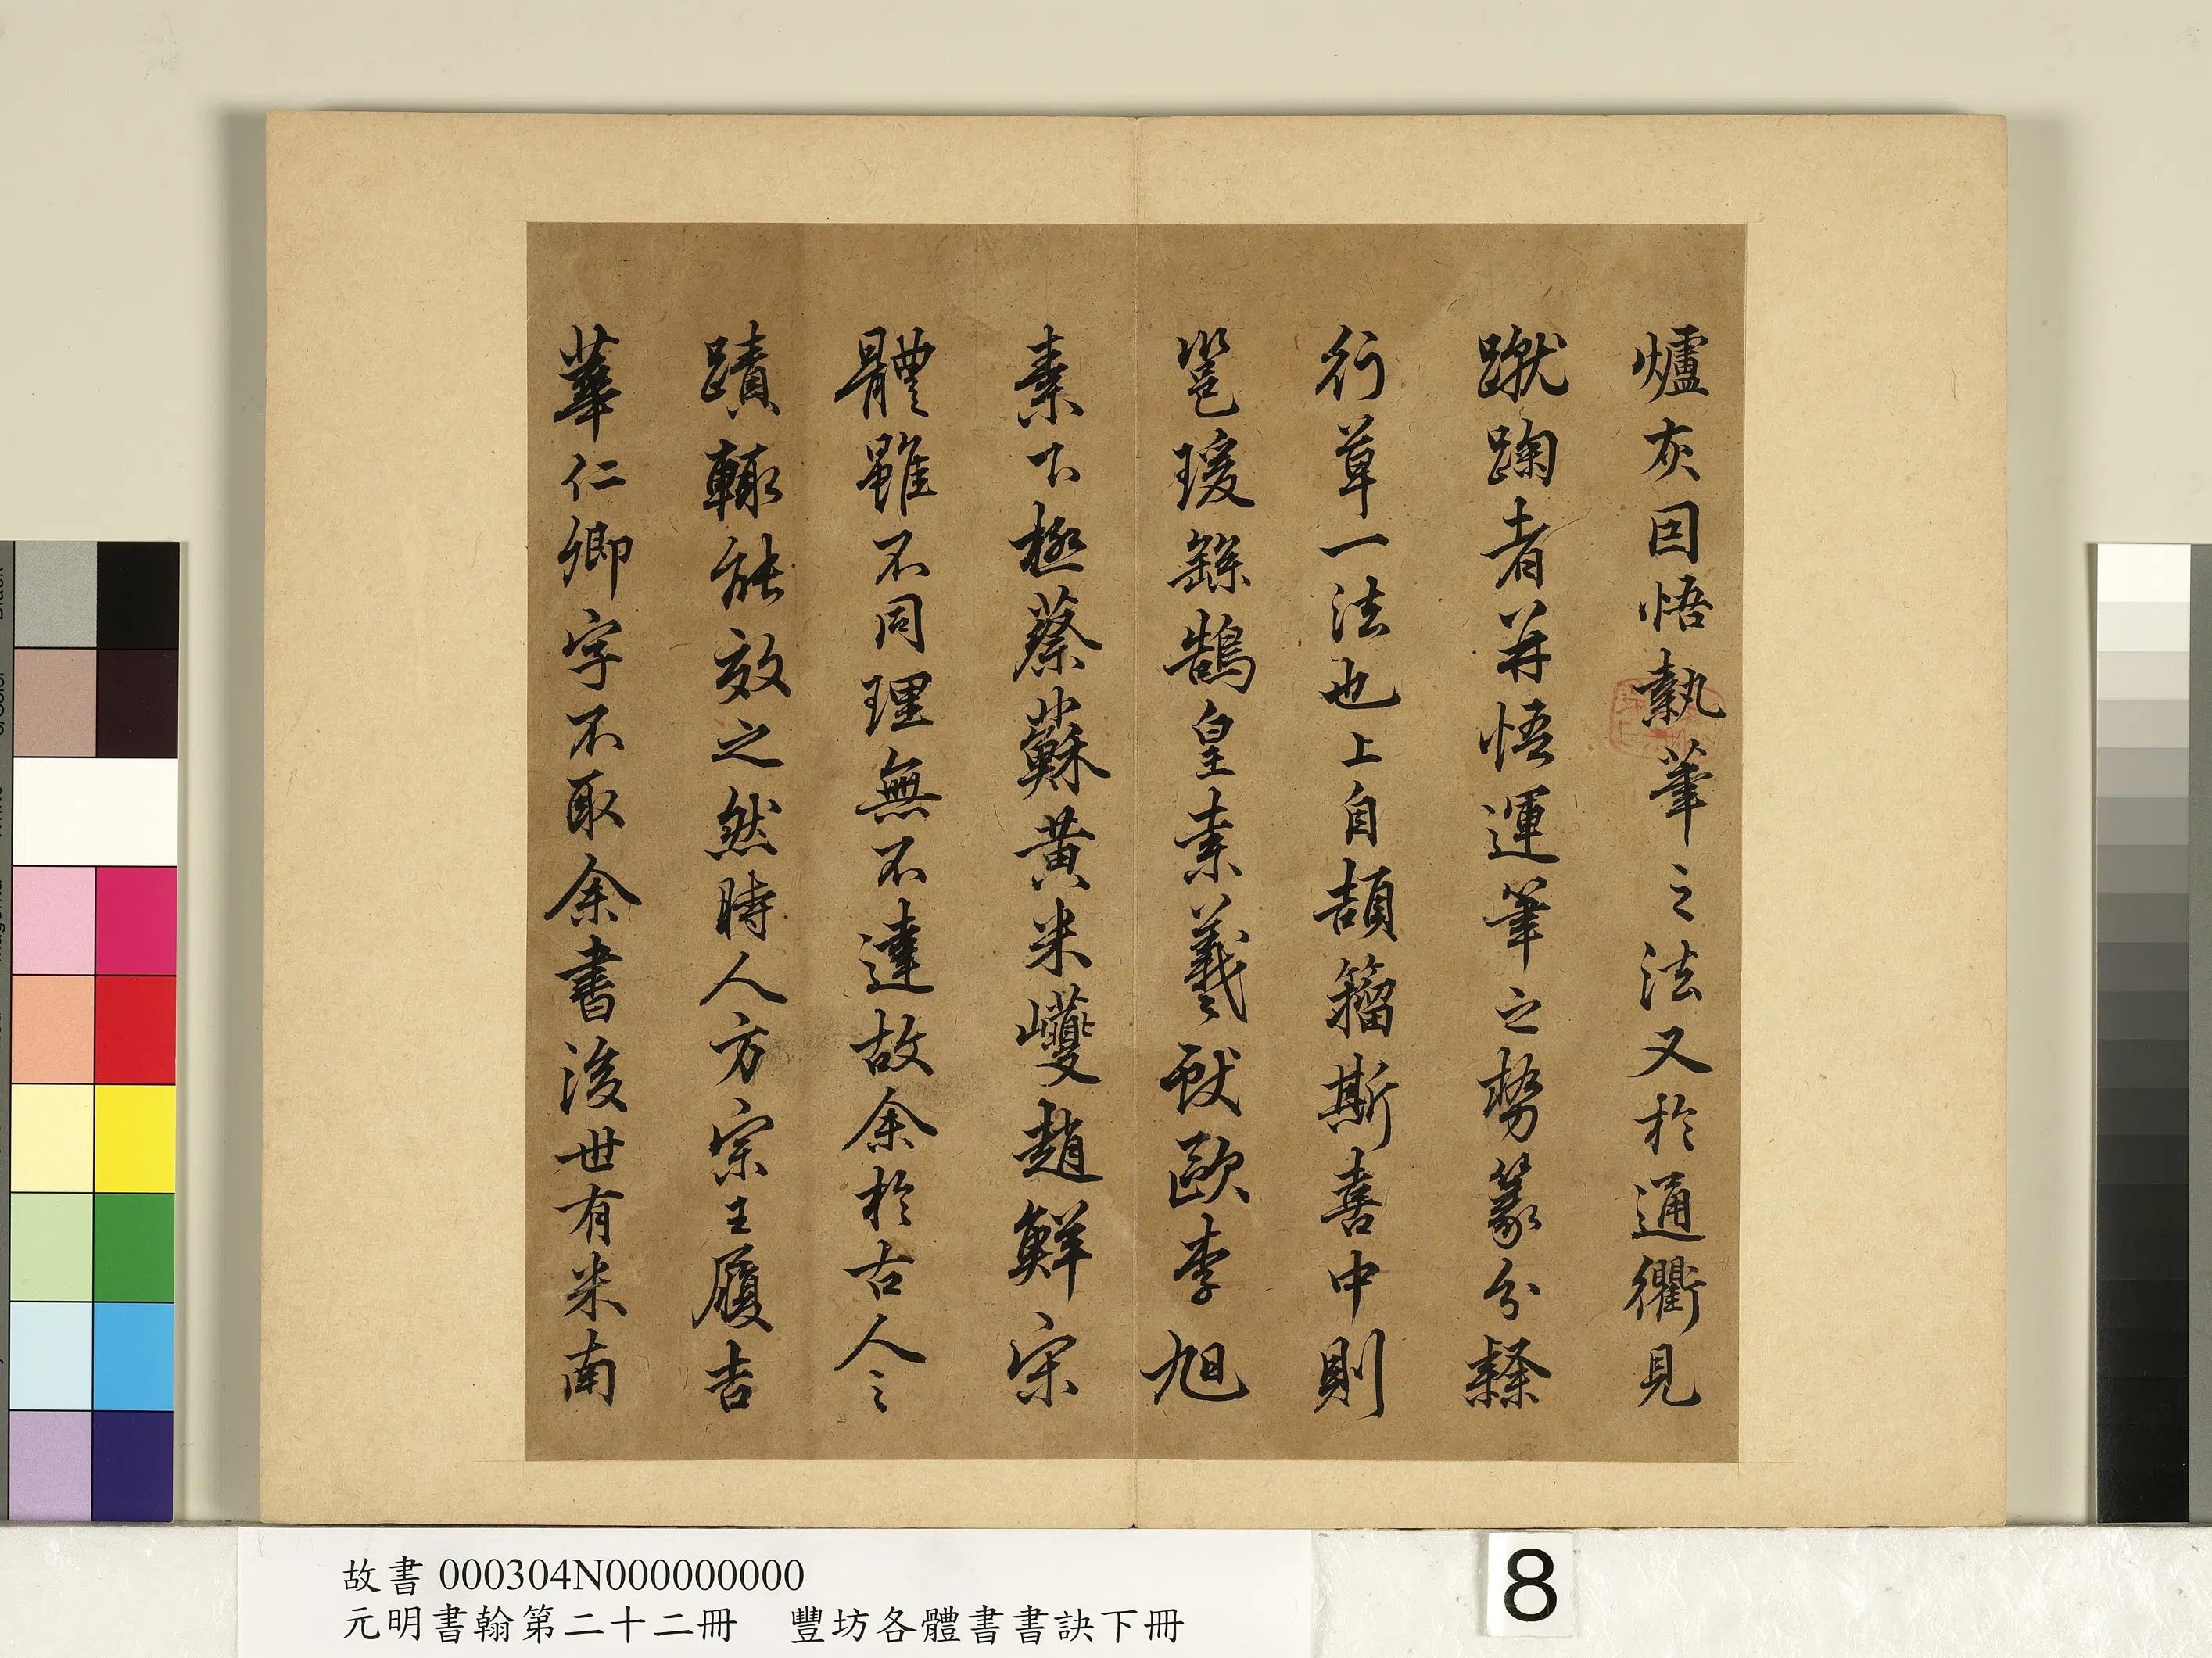 爐灰因悟執筆之法又於通衢見
蹴踘者并悟運筆之勢篆分隸
行草一法也上自頡籀斯喜中則
邕瑗繇鵠皇素羲獻歐李旭
素下極蔡蘇黃米巙趙鮮宋
體雖不同理無不達故余於古人之
蹟輒能效之然時人方宗王履吉
華仁卿字不取余書後世有米南
故書 000304N000000000
元明書翰第二十二冊 豐坊各體書書訣下冊
8